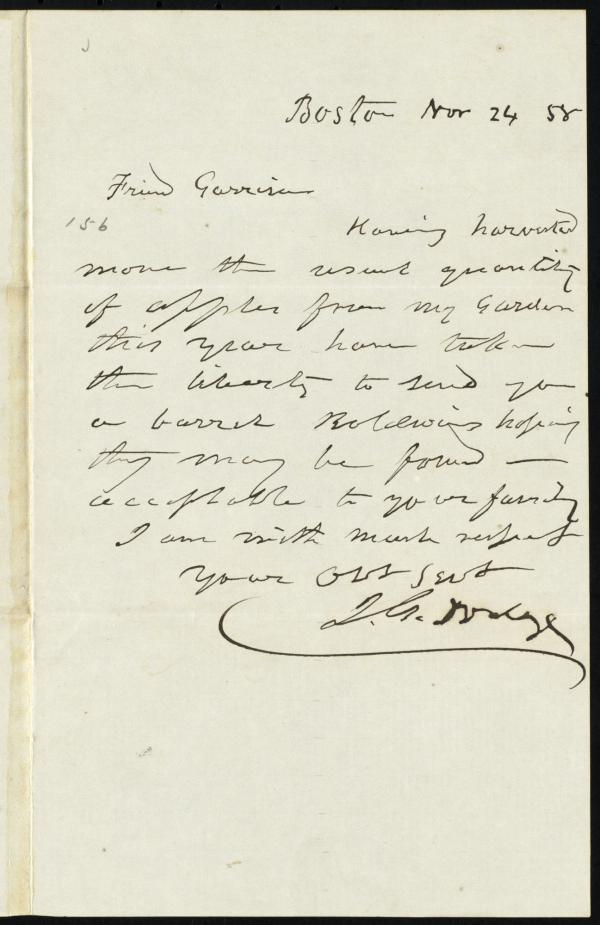 Boston Nov 24 58
Friend Garrison
156
Having harvested
more the usual quantity
of apples from my Garden
this year have taken
the liberty to send you
a barrel Baldwins hoping
they may be found —
acceptable to your family
I am with much respect
your Obt Servt
Dodge